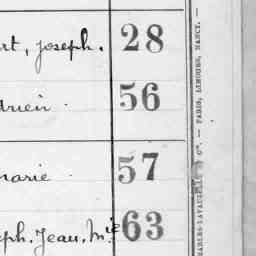 rt, Joseph. 28
drien 56
marie 57
ph. Jean, Mie 63
CHARLES-LAVAUZELLE & Cie. — PARIS, LIMOGES, NANCY. —